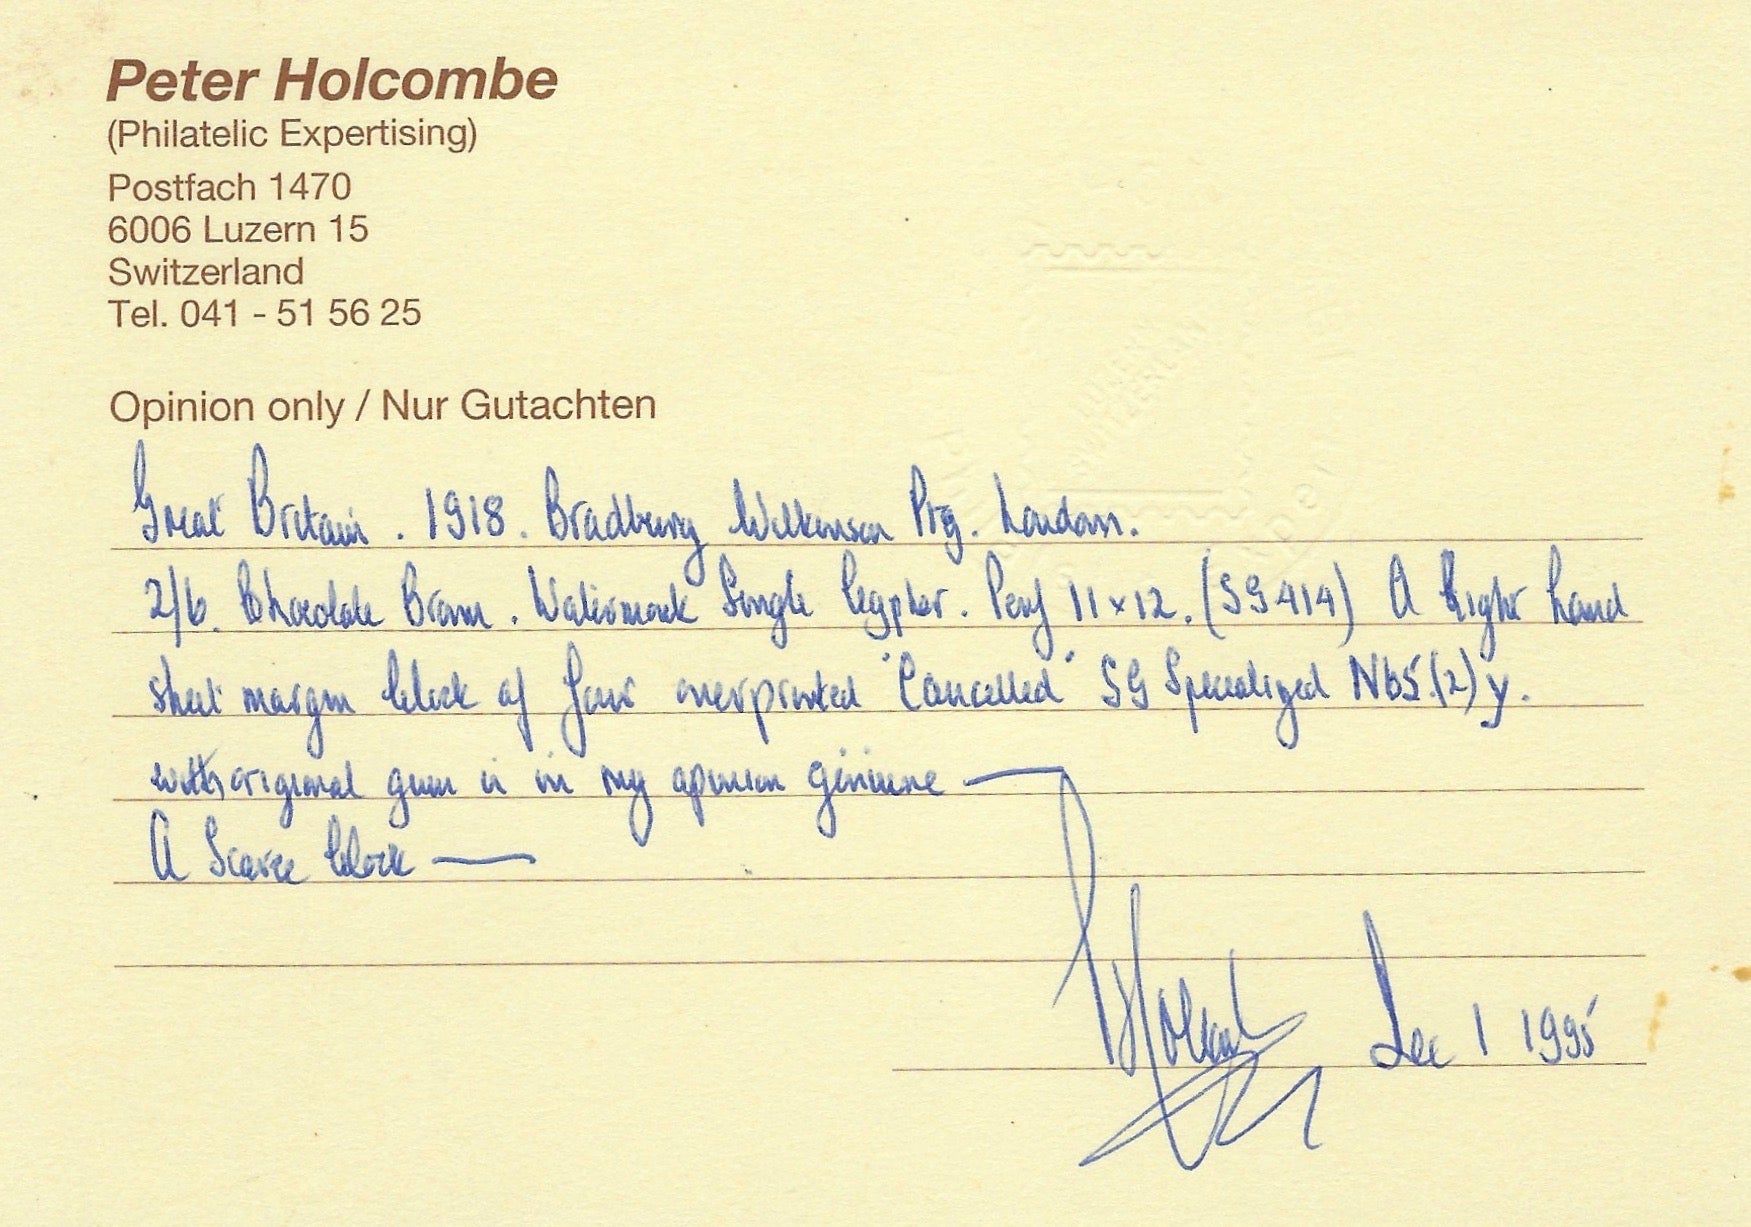 Peter Holcombe
(Philatelic Expertising)
Postfach 1470
6006 Luzern 15
Switzerland
Tel. 041 - 51 56 25
Opinion only / Nur Gutachten
Great Britain. 1918. Bradbury Wilkinson Prtg. London.
2/6. Chocolate Brown. Watermark Single Cypher. Perf 11 x 12. (SG 414) A Right hand
sheet margin block of four overprinted "Cancelled" SG Specialized N65.(2)y.
with original gum is in my opinion genuine —
A Scarce block —
Dec 1 1995
SWITZERLAND